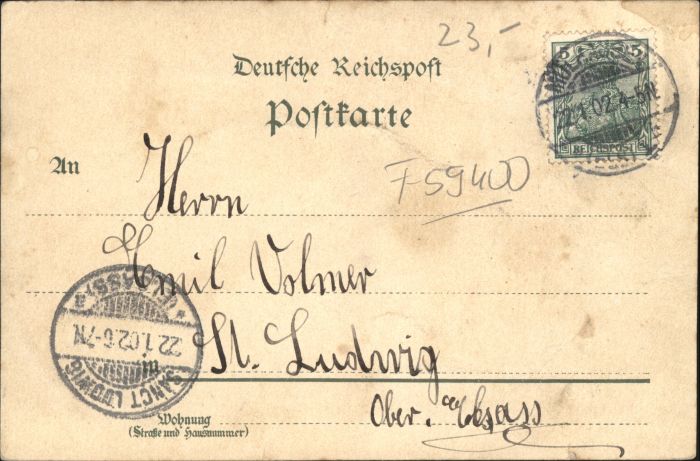 23,-
5 5
Deutsche Reichspost
Postkarte
22.1.02.4-5N
REICHSPOST
An
Herrn
F59400
Emil Volmer
St. Ludwig
Ober. Elsass
SANCT LUDWIG
22.1.02.6-7N
(ELSASS)
Wohnung
(Straße und Hausnummer)